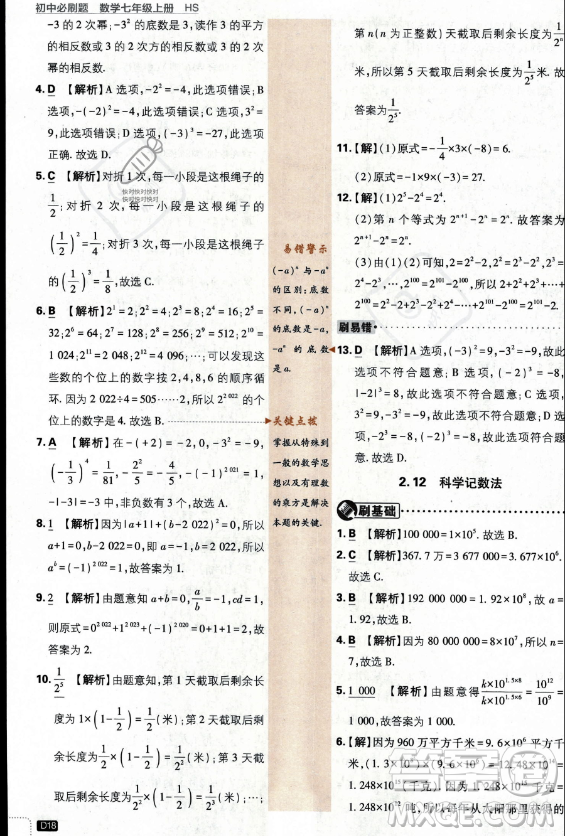 初中必刷题 数学七年级上册 HS
-3的2次幂;-3²的底数是3,读作3的平方
的相反数或3的2次方的相反数或3的2次
幂的相反数.
4. D 【解析】A选项,-2²=-4,此选项错误;B
选项,-(-2)²=-4,此选项错误;C选项,3²=
9,此选项错误;D选项,(-3)³=-27,此选项
正确.故选D.
5. C 【解析】对折1次,每一小段是这根绳子的
1/2;对折2次,每一小段是这根绳子的
(1/2)²=1/4;对折3次,每一小段是这根绳子
的(1/2)³=1/8,故选C.
6. B 【解析】2¹=2;2²=4;2³=8;2⁴=16;2⁵=
32;2⁶=64;2⁷=128;2⁸=256;2⁹=512;2¹⁰=
1 024;2¹¹=2 048;2¹²=4 096;…;可以发现这
些数的个位上的数字按2,4,8,6的顺序循
环.因为2 022÷4=505……2,所以2²⁰²²的个
位上的数字是4.故选B.
7. A 【解析】在-(+2)=-2,0,-3²=-9,
(-1/3)⁴=1/81,-2²/5=-4/5,(-1)²⁰²¹=-1,
-|-3|=-3中,非负数有3个.故选A.
8. 1 【解析】因为|a+1|+(b-2 022)²=0,所以
a+1=0,b-2 022=0,即a=-1,b=2 022,所以
aᵇ=(-1)²⁰²²=1,故答案为1.
9. 2 【解析】由题意知a+b=0,a/b=-1,cd=1,
则原式=0²⁰²²+1²⁰²³+(-1)²⁰²⁰=0+1+1=2,故
答案为2.
10. 1/2⁵ 【解析】由题意知,第1天截取后剩余长
度为1×(1-1/2)=1/2(米);第2天截取后剩
余长度为1/2×(1-1/2)=1/2²(米);第3天截
取后剩余长度为1/2²×(1-1/2)=1/2³(米);…;
D18
易错警示
(-a)ⁿ与-aⁿ
的区别:底数
不同,(-a)ⁿ
的底数是-a,
-aⁿ的底数
是a.
关键点拨
掌握从特殊到
一般的数学思
想以及有理数
的乘方是解决
本题的关键.
第n(n为正整数)天截取后剩余长度为1/2ⁿ
米,所以第5天截取后剩余长度为1/2⁵米.故
答案为1/2⁵.
11.【解】(1)原式=-1/4×3×(-8)=6.
(2)原式=-1×9×(-3)=27.
12.【解】(1)2⁵-2⁴=2⁴.
(2)第n个等式为2ⁿ⁺¹-2ⁿ=2ⁿ.故答案为
2ⁿ⁺¹-2ⁿ=2ⁿ.
(3)由(1)(2)可知,2=2²-2,2²=2³-2²,2³=
2⁴-2³,…,2¹⁰⁰=2¹⁰¹-2¹⁰⁰,所以2+2²+2³+…+
2¹⁰⁰=2²-2+2³-2²+2⁴-2³+…+2¹⁰¹-2¹⁰⁰=2¹⁰¹-2.
刷易错
13. D 【解析】A选项,(-3)²=9,-3²=-9,故此
选项不符合题意;B选项,(-2)³=-8,
|-2|³=8,故此选项不符合题意;C选项,
3²=9,-3²=-9,故此选项不符合题意;D选
项,-2³=-8,(-2)³=-8,故此选项符合
题意.故选D.
2.12 科学记数法
刷基础
1. B 【解析】100 000=1×10⁵.故选B.
2. C 【解析】367.7万=3 677 000=3.677×10⁶.
故选C.
3. B 【解析】192 000 000=1.92×10⁸,故a=
1.92.故选B.
4. B 【解析】因为80 000 000=8×10⁷,所以n=
7.故选B.
5. 1 000 【解析】由题意得k×10^(1.5×8)/k×10^(1.5×6)=10¹²/10⁹=
1 000.故答案为1 000.
6.【解】因为960万平方千米=9.6×10⁶平方千
米,(1.3×10⁸)×(9.6×10⁶)=12.48×10¹⁴=
1.248×10¹⁵(千克),因为1.248×10¹⁵千克=
1.248×10¹²吨,所以每年从太阳那里获得的